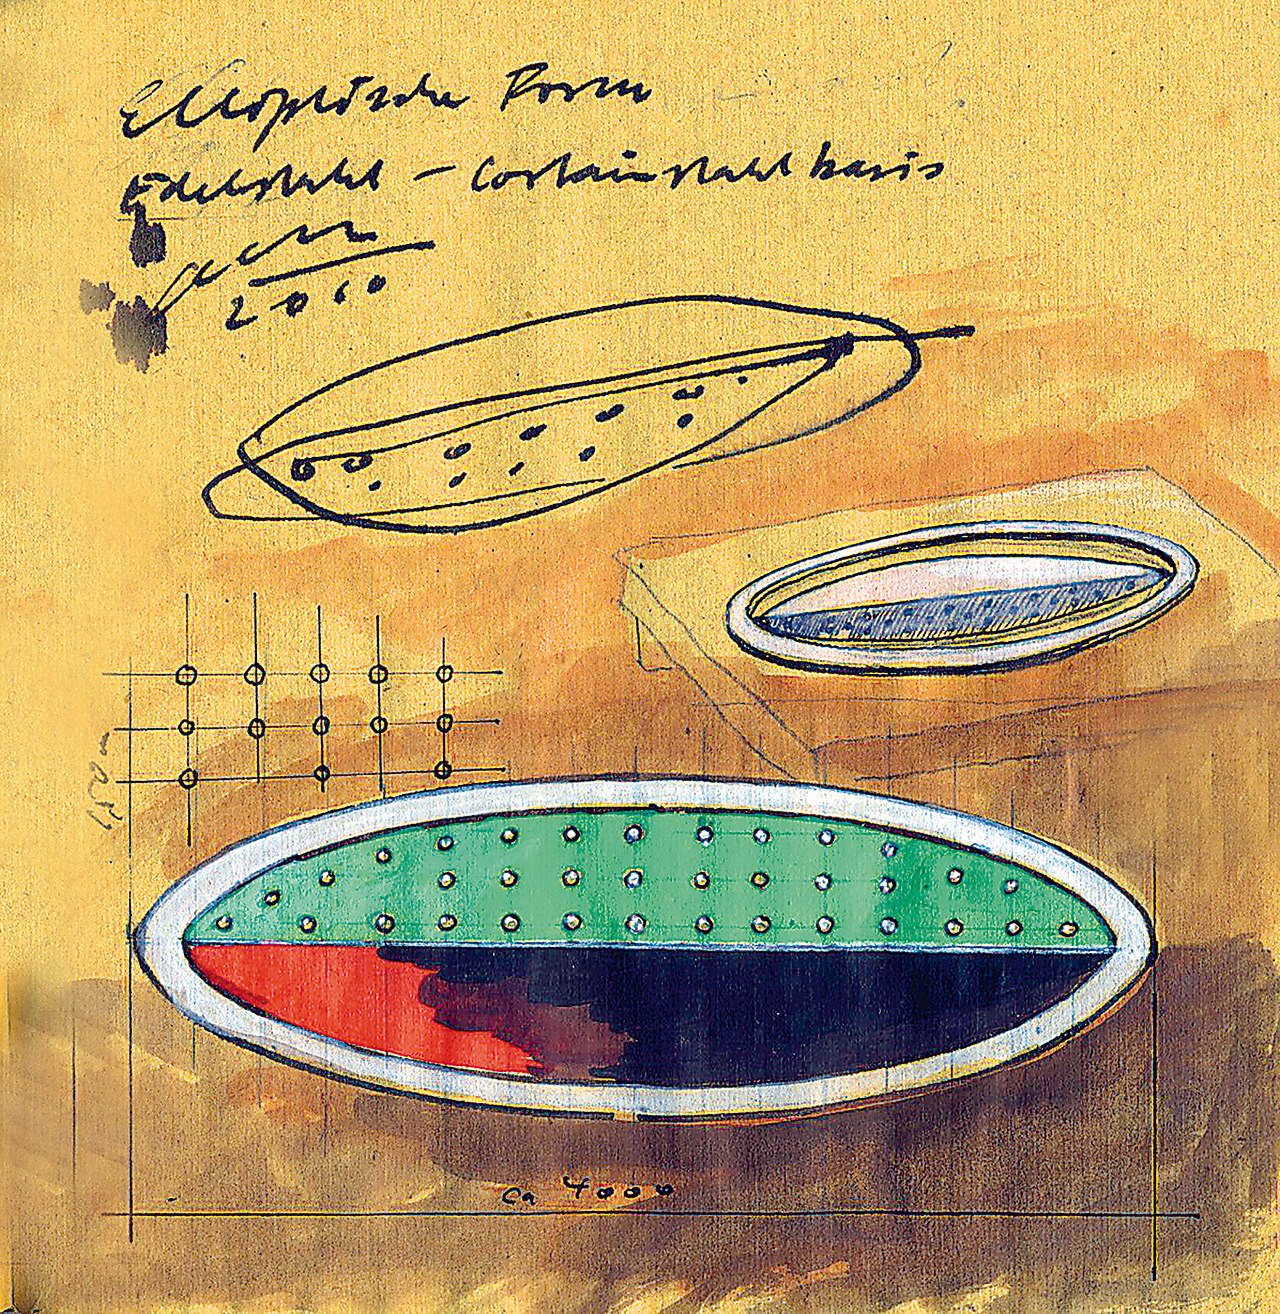 Elliptische Form
Edelstahl – Cortainstahl basis
2010
ca 4000